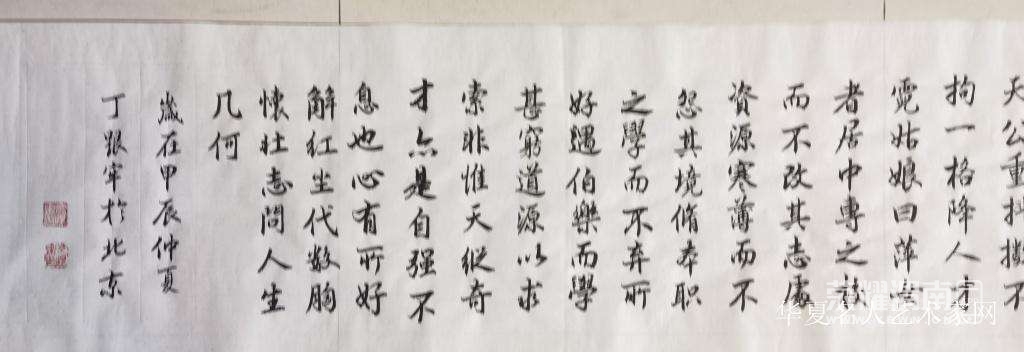 天公重抖擞不
拘一格降人才
霓姑娘曰萍
者居中專之校
而不改其志處
資源寒薄而不
怨其境脩本职
之學而不弃所
好遇伯樂而學
甚窮道源以求
索非惟天纵奇
才亦是自强不
息也心有所好
解红尘代数胸
懷壮志問人生
几何
歲在甲辰仲夏
丁跟牢於北京
华夏名人艺术家网